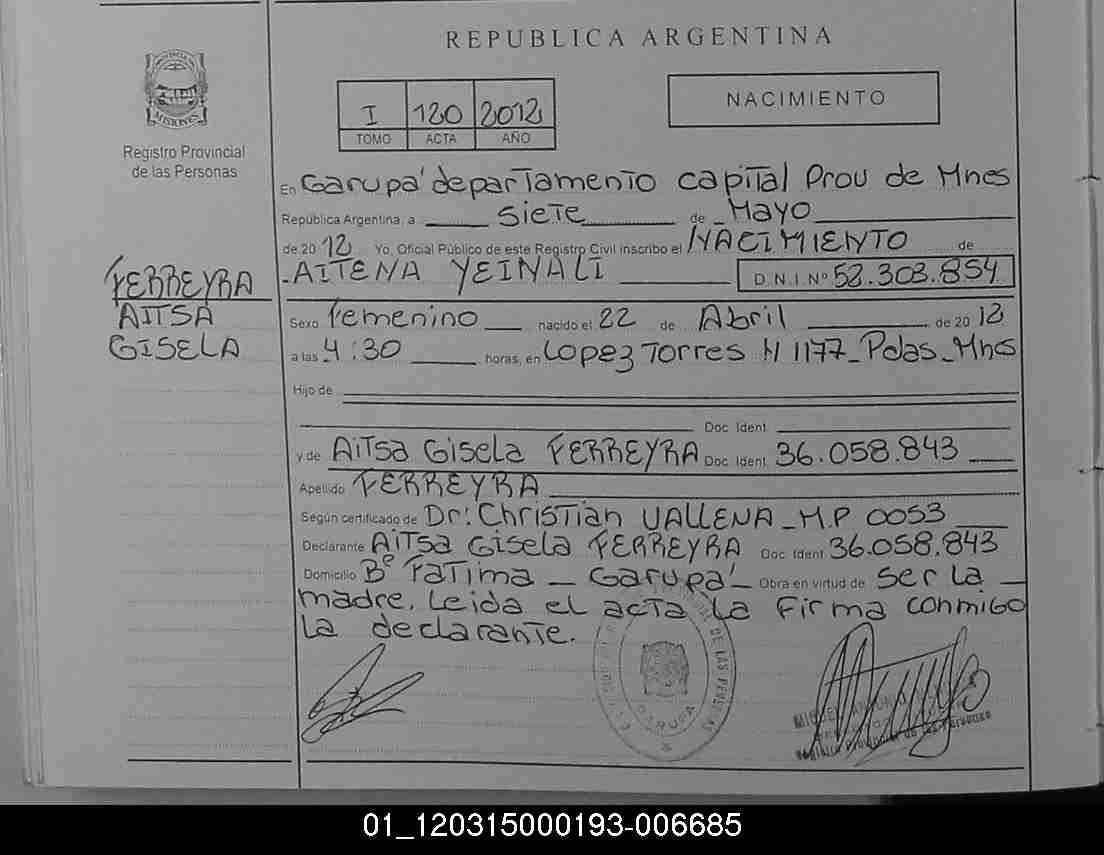 REPUBLICA ARGENTINA
PROVINCIA DE
MISIONES
Registro Provincial
de las Personas
I 120 2012
TOMO ACTA AÑO
NACIMIENTO
En Garupá departamento capital Prov de Mnes
República Argentina, a siete de Mayo
de 2012 Yo, Oficial Público de este Registro Civil inscribo el NACIMIENTO de
FERREYRA
AITSA
GISELA
AITENA YEINALI D.N.I. Nº 52.303.854
Sexo Femenino nacido el 22 de Abril de 2012
a las 4:30 horas, en Lopez Torres N 1177 - Pdas - Mnes
Hijo de
Doc Ident
y de Aitsa Gisela FERREYRA Doc Ident 36.058.843
Apellido FERREYRA
Según certificado de Dr: Christian VALLENA - M.P 0053
Declarante Aitsa Gisela FERREYRA Doc Ident 36.058.843
Domicilio Bº Fatima - Garupá - Obra en virtud de ser la
madre. Leida el acta la firma conmigo
la declarante.
DE LAS PERSONAS
GARUPA
MIGUEL ANTONIO
Registro Provincial de las Personas
01_120315000193-006685